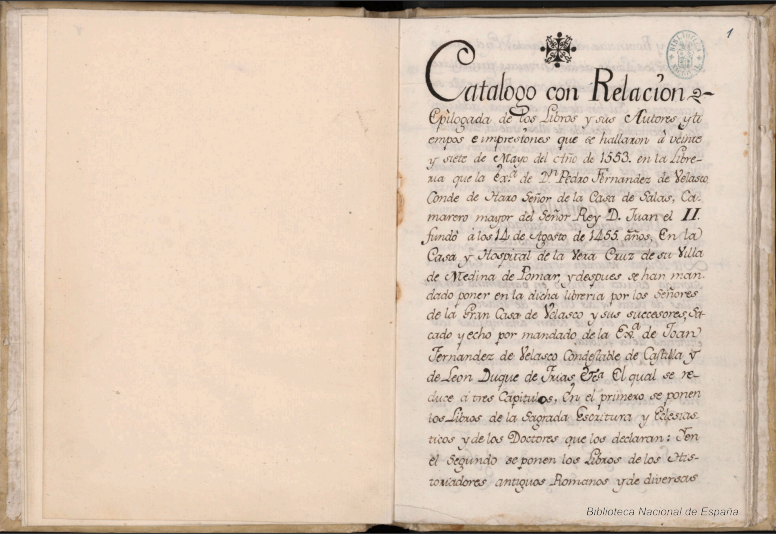 1
Catalogo con Relacion
Epilogada de los Libros y sus Autores y ti
empos e impresiones que se hallaron â veinte
y siete de Mayo del año de 1553. en la Libre-
ria que la Exª. de Dⁿ. Pedro Fernandez de Velasco
Conde de Haro Señor de la Casa de Salas, Ca-
marero mayor del Señor Rey D. Juan el II
fundô â los 14 de Agosto de 1455 años, En la
Casa y Hospital de la Vera Cruz de su Villa
de Medina de Pomar, y despues se han man-
dado poner en la dicha libreria por los Señores
de la Gran Casa de Velasco y sus succesores, Sa-
cado y echo por mandado de la Exª. de Joan
Fernandez de Velasco Condestable de Castilla y
de Leon Duque de Frias, &ª. El qual se re-
duce â tres Capitulos, En el primero se ponen
los Libros de la Sagrada Escritura y Eclesias
ticos y de los Doctores que los declaran: Y en
el Segundo se ponen los Libros de los His-
toriadores antiguos Romanos y de diversas
Biblioteca Nacional de España